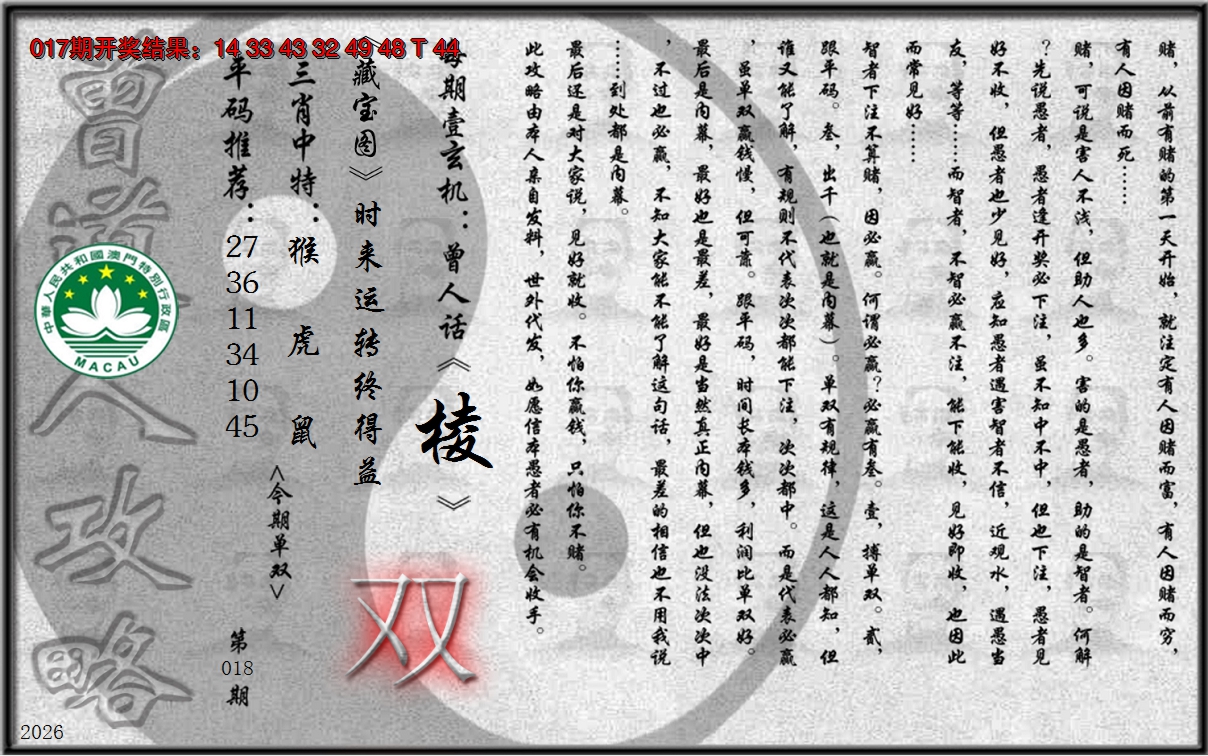 017期开奖结果：14 33 43 32 49 48 T 44
赌，从前有赌的第一天开始，就注定有人因赌而富，有人因赌而穷，
有人因赌而死……
赌，可说是害人不浅，但助人也多。害的是愚者，助的是智者。何解
？先说愚者，愚者逢开奖必下注，虽不知中不中，但也下注，愚者见
好不收，但愚者也少见好，应知愚者遇害智者不信，近观水，遇愚当
友，等等……而智者，不智必赢不注，能下能收，见好即收，也因此
而常见好……
智者下注不算赌，因必赢。何谓必赢？必赢有叁。壹，搏单双。贰，
跟平码。叁，出千（也就是内幕）。单双有规律，这是人人都知，但
谁又能了解，有规则不代表次次都能下注，次次都中。而是代表必赢
，虽单双赢钱慢，但可靠。跟平码，时间长本钱多，利润比单双好。
最后是内幕，最好也是最差，最好是当然真正内幕，但也没法次次中
，不过也必赢，不知大家能不能了解这句话，最差的相信也不用我说
……到处都是内幕。
最后还是对大家说，见好就收。不怕你赢钱，只怕你不赌。
此攻略由本人亲自发料，世外代发，如愿信本愚者必有机会收手。
每期壹玄机：曾人话《棱》
《藏宝图》时来运转终得益
双
三肖中特：猴 虎 鼠
<今期单双>
平码推荐：
27
36
11
34
10
45
第
018
期
曾道人攻略
中華人民共和國澳門特別行政區
MACAU
2026